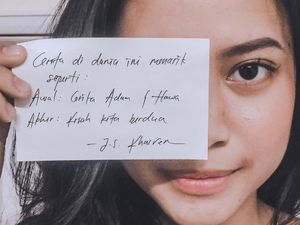 Cerita di dunia ini menarik
seperti:
Awal: Cerita Adam & Hawa
Akhir: Kisah kita berdua
— J.S. Khairen